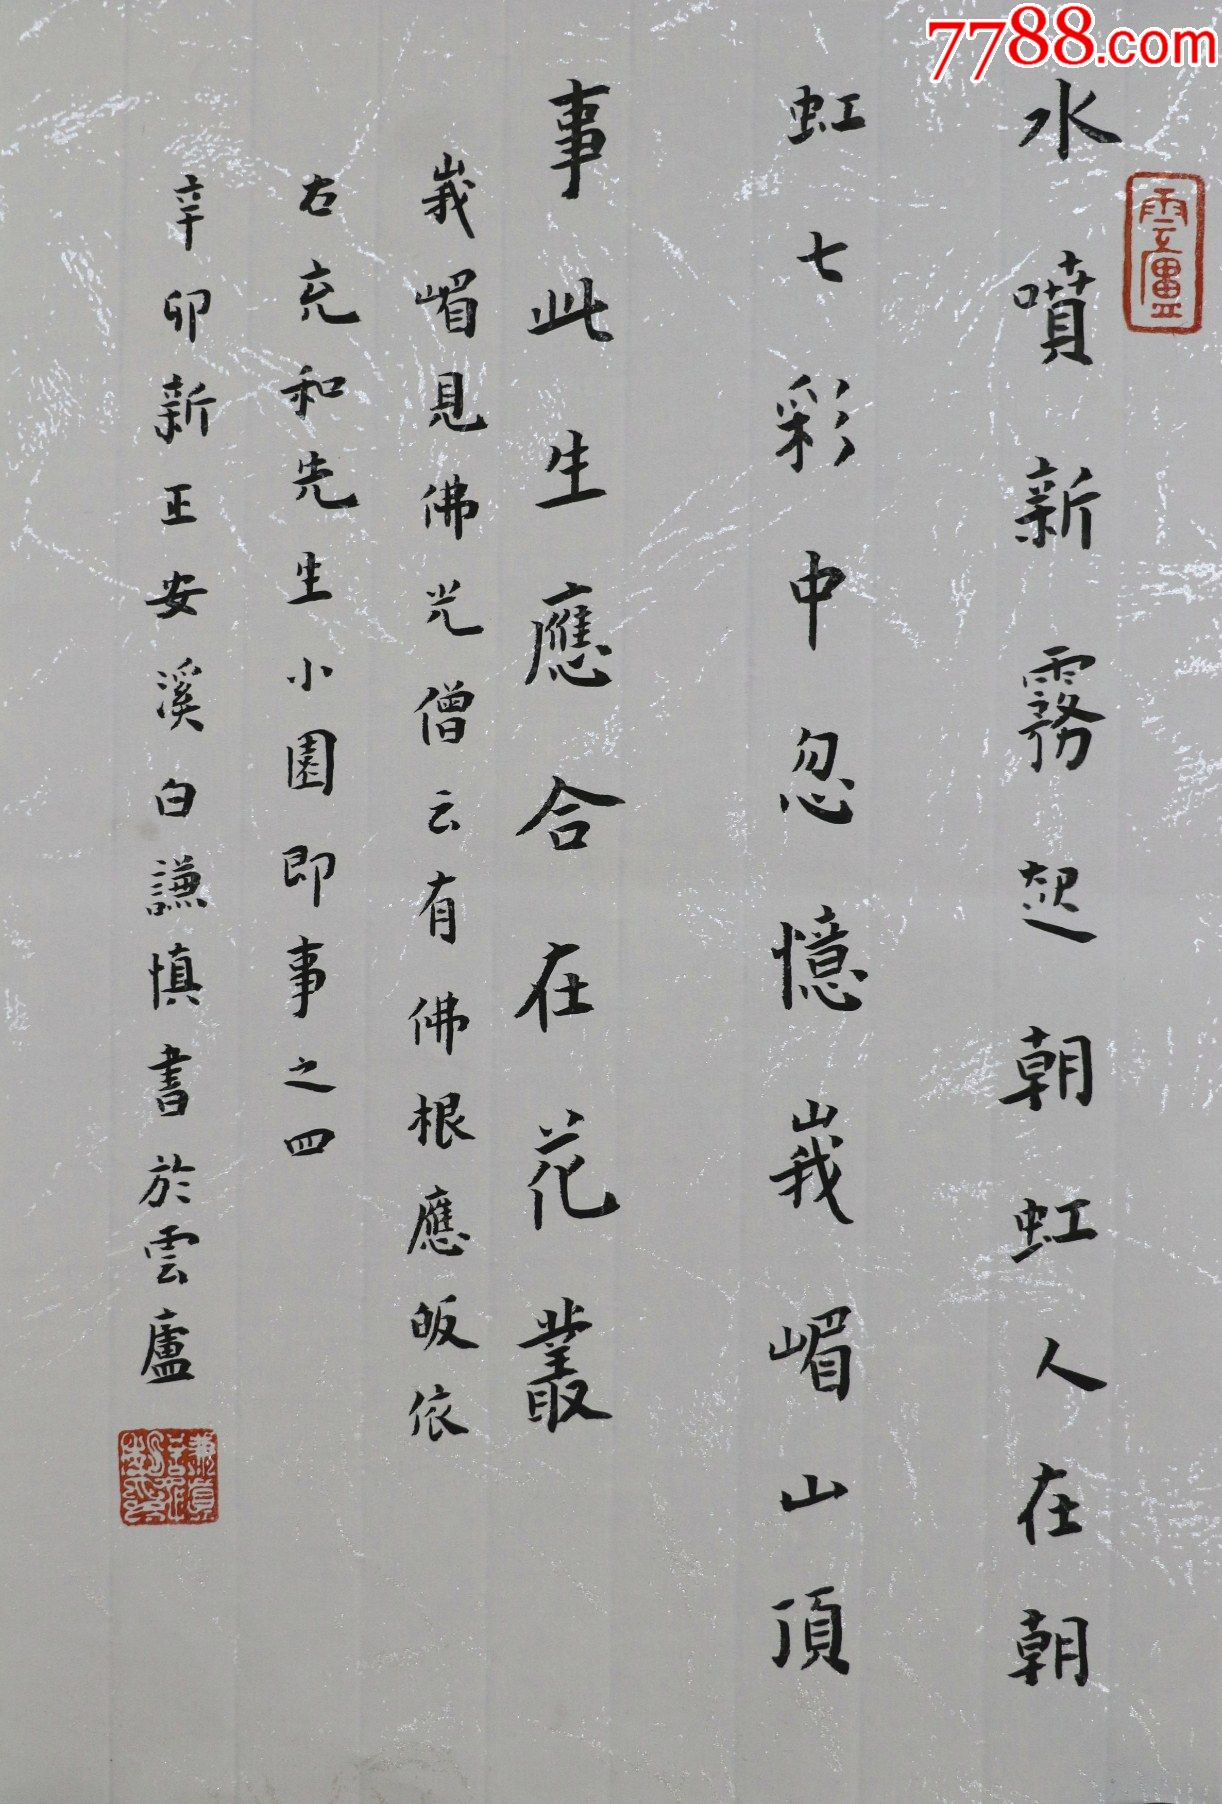 7788.com
雲廬
水噴新霧起朝虹人在朝
虹七彩中忽憶峩嵋山頂
事此生應合在花叢
峩嵋見佛光僧云有佛根應皈依
右充和先生小園即事之四
辛卯新正安溪白謙慎書於雲廬